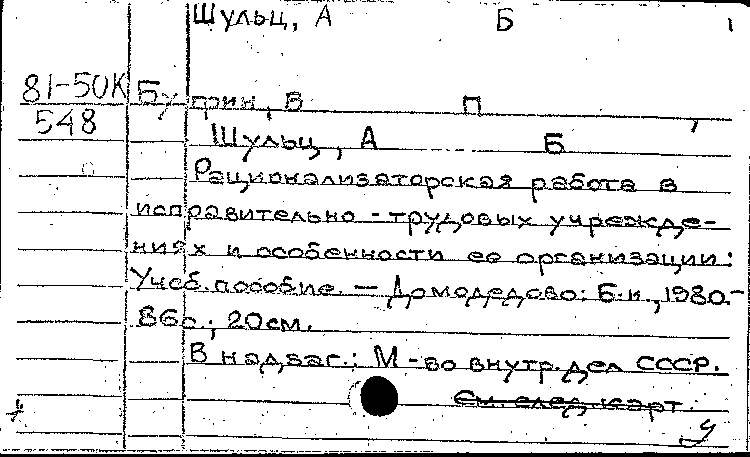 Шульц, А Б
81-50К Бу рин, В П
548
Шульц, А Б
Рационализаторская работа в
исправительно-трудовых учрежде-
ниях и особенности ее организации:
Учеб. пособие. — Домодедово: Б.и., 1980.-
86с.; 20см.
В надзаг.: М-во внутр. дел СССР.
См. след. карт.